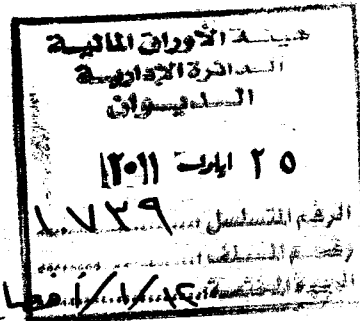 هيئة الأوراق المالية
الدائرة الإدارية
الديوان
٢٥ ايلول ٢٠١١
الرقم المتسلسل ١٧٣٩
رقم الملف
الجهة المختصة